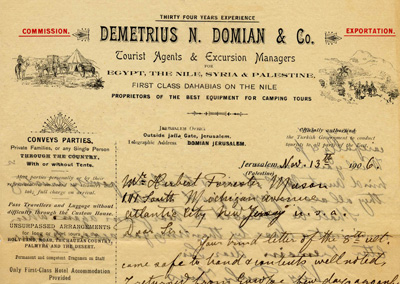 THIRTY FOUR YEARS EXPERIENCE
COMMISSION.
EXPORTATION.
DEMETRIUS N. DOMIAN & Co.
Tourist Agents & Excursion Managers
FOR
EGYPT, THE NILE, SYRIA & PALESTINE,
FIRST CLASS DAHABIAS ON THE NILE
PROPRIETORS OF THE BEST EQUIPMENT FOR CAMPING TOURS
JERUSALEM OFFICE
Outside Jaffa Gate, Jerusalem.
Telegraphic Address DOMIAN JERUSALEM.
Officially authorized
the Turkish Government to conduct
CONVEYS PARTIES,
Private Families, or any Single Person
THROUGH THE COUNTRY,
With or without Tents.
Pass Travellers and Luggage without
difficulty through the Custom House.
UNSURPASSED ARRANGEMENTS
for long or short tours
HOLY LAND, MOAB, THE HAURAN COUNTRY,
PALMYRA AND THE DESERT.
Permanent and competent Dragoman on Staff
Only First-Class Hotel Accommodation
Provided
Jerusalem, Nov. 13th 1906
(Palestine)
Mr. Herbert Forrester Mason
181 South Michigan avenue
atlantic city New Jersey U.S.a.
Dear Sir
Your kind letter of the 8th ult.
came safe to hand & contents well noted,
I returned from
a few days ago